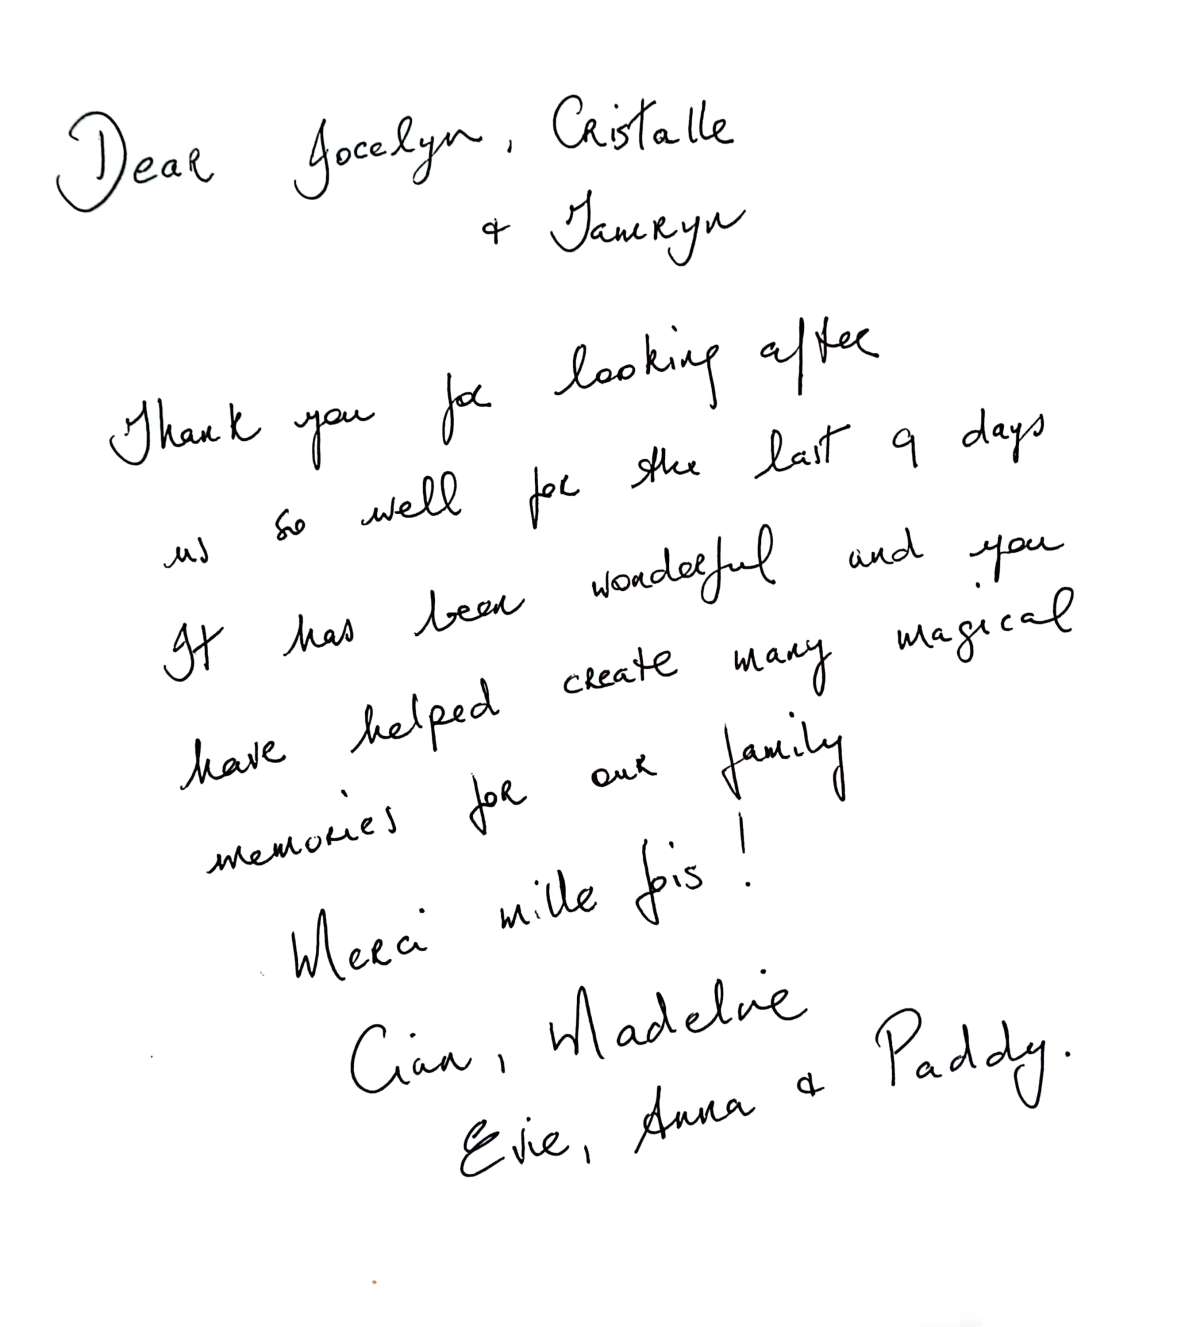 Dear Jocelyn, Cristalle
& Tamryn
Thank you for looking after
us so well for the last 9 days
It has been wonderful and you
have helped create many magical
memories for our family
Merci mille fois !
Cian, Madeline
Evie, Anna & Paddy.